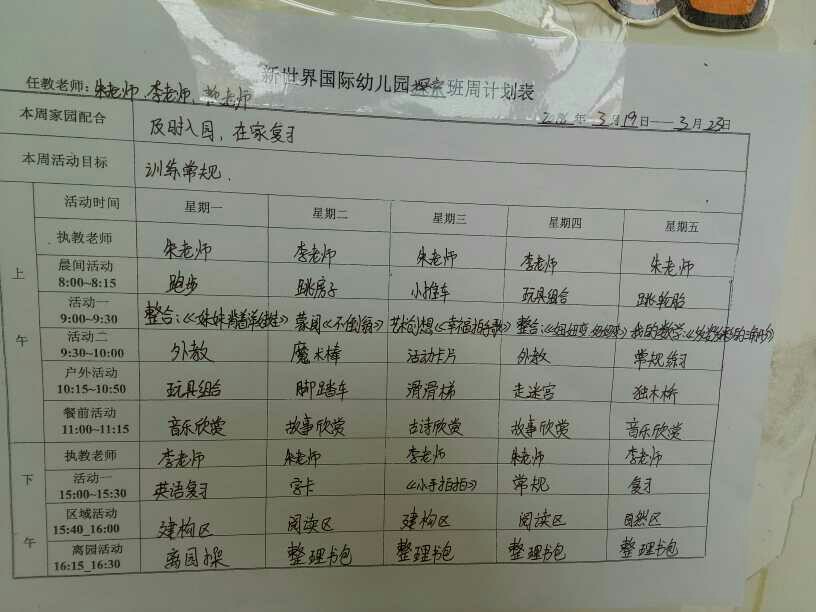 新世界国际幼儿园探索班周计划表
任教老师：朱老师、李老师、
2018年3月19日——3月23日
本周家园配合 及时入园，在家复习
本周活动目标 训练常规.
上午
活动时间 星期一 星期二 星期三 星期四 星期五
执教老师 朱老师 李老师 朱老师 李老师 朱老师
晨间活动 8:00~8:15 跑步 跳房子 小推车 玩具组合 跳轮胎
活动一 9:00~9:30 整合：《妹妹背着洋娃娃》 蒙阅《不倒翁》 艺术创想《幸福拍手歌》 整合：《妞妞变 我的数学：
活动二 9:30~10:00 外教 魔术棒 活动卡片 外教 常规练习
户外活动 10:15~10:50 玩具组合 脚踏车 滑滑梯 走迷宫 独木桥
餐前活动 11:00~11:15 音乐欣赏 故事欣赏 古诗欣赏 故事欣赏 音乐欣赏
下午
执教老师 李老师 朱老师 李老师 朱老师 李老师
活动一 15:00~15:30 英语复习 字卡 《小手拍拍》 常规 复习
区域活动 15:40_16:00 建构区 阅读区 建构区 阅读区 自然区
离园活动 16:15_16:30 离园操 整理书包 整理书包 整理书包 整理书包